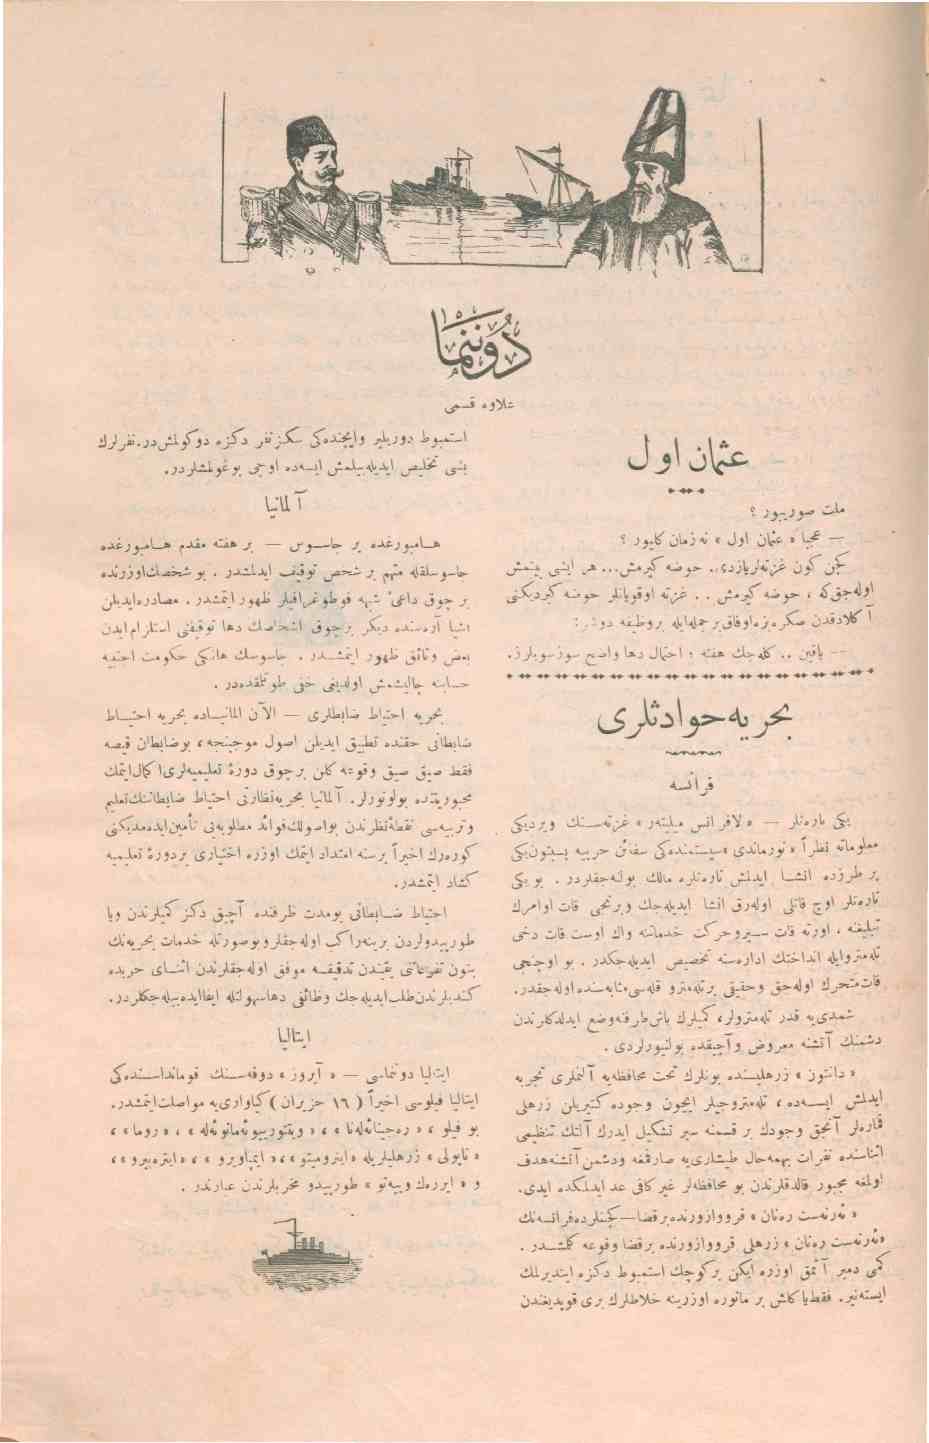 دوننما
علاوه قسمی
عثمان اول
ملت صوریور ؟
— عجبا « عثمان اول » نه زمان كلیور ؟
كچن كون غزته‌لر یازدی.. حوضه كیرمش... هر ایشی بیتمش
اوله‌جق كه ، حوضه كیرمش . . غزته اوقویانلر حوضه كیردیكنی
آكلادقدن صكره بزه اوفاق بر جمله ایله بر وظیفه دوشر :
— یاقین .. كله جك هفته ؛ احتمال دها واضح سوز سویلرز.
بحریه حوادثلری
فرانسه
یكی تاره‌تلر — « لافرانس میلیته‌ر » غزته‌سنك ویردیكی
معلوماته نظراً « نورماندی » سیستمنده‌كی سفائن حربیه بسبتون یكی
بر طرزده انشا ایدلمش تاره‌تلره مالك بولنه‌جقلردر . بو یكی
تاره‌تلر اوچ قاتلی اوله‌رق انشا ایدیله‌جك و برنجی قات اوامرك
تبلیغنه ، اورته قات سیر و حركت خدماتنه واك اوست قات دخی
تله‌مترو ایله انداختك اداره‌سنه تخصیص ایدیله‌جكدر . بو اوچنجی
قات متحرك اوله‌جق و حقیقی بر تله‌مترو قله‌سی مثابه‌سنده اوله‌جقدر.
شمدی‌یه قدر تله‌مترولر، كمیلرك باش طرفنه وضع ایدلدكلرندن
دشمنك آتشنه معروض و آچیقده بولنیورلردی .
« دانتون » زرهلیسنده بونلرك تحت محافظه‌یه آلنملری تجربه
ایدلمش ایسه‌ده ، تله‌متروجیلر ایچون وجوده كتیریلن زرهلی
قماره‌لر آنجق وجودك بر قسمنه سپر تشكیل ایدرك آلتك تنظیمی
اثناسنده نفرات بهمه‌حال طیشاری‌یه صارقمغه و دشمن آتشنه هدف
اولمغه مجبور قالدقلرندن بو محافظه‌لر غیر كافی عد ایدلمكده ایدی.
« ئه‌رنه‌ست ره‌نان » قرووازورنده بر قضا — كچنلرده فرانسه‌نك
« ئه‌رنه‌ست ره‌نان » زرهلی قرووازورنده بر قضا وقوعه كلمشدر .
كمی دمیر آتمق اوزره ایكن بر كوچك استمبوط دكزه ایندیرلمك
ایسته‌نیر. فقط یاكلش بر مانوره اوزرینه خلاطلرك بری قوپدیغندن
استمبوط دوریلیر و ایچنده‌كی سكز نفر دكزه دوكولمش‌در. نفرلرك
بشی تخلیص ایدیله‌بیلمش ایسه‌ده اوچی بوغولمشلردر.
آلمانیا
هامبورغده بر جاسوس — بر هفته مقدم هامبورغده
جاسوسلقله متهم بر شخص توقیف ایدلمشدر . بو شخصك اوزرنده
بر چوق داعیٔ شبهه فوطوغرافیلر ظهور ایتمشدر. مصادره ایدیلن
اشیا آره‌سنده دیكر بر چوق اشخاصك دها توقیفنی استلزام ایدن
بعض وثائق ظهور ایتمشدر . جاسوسك هانكی حكومت اجنبیه
حسابنه چالیشمش اولدیغی خفی طوتلمقده‌در .
بحریه احتیاط ضابطلری — الآن المانیاده بحریه احتیاط
ضابطانی حقنده تطبیق ایدیلن اصول موجبنجه ، بو ضابطان قیصه
فقط صیق صیق وقوعه كلن بر چوق دورهٔ تعلیمیه‌لری اكمال ایتمك
مجبوریتنده بولونورلر. آلمانیا بحریه نظارتی احتیاط ضابطاننك تعلیم
و تربیه‌سی نقطهٔ نظرندن بو اصولك فوائد مطلوبه‌یی تأمین ایده‌مدیكنی
كوره‌رك اخیراً بر سنه امتداد ایتمك اوزره اختیاری بر دورهٔ تعلیمیه
كشاد ایتمشدر.
احتیاط ضابطانی بو مدت ظرفنده آچیق دكز كمیلرندن ویا
طورپیدولردن برینه راكب اوله‌جقلر و بو صورتله خدمات بحریه‌نك
بتون تفرعاتنی یقیندن تدقیقه موفق اوله‌جقلرندن اثنای حربده
كندیلرندن طلب ایدیله‌جك وظائفی دها سهولتله ایفا ایده‌بیله‌جكلردر.
ایتالیا
ایتالیا دونانماسی — « آبروز » دوقه‌سنك قومانداسنده‌كی
ایتالیا فیلوسی اخیراً ( ۱٦ حزیران ) كیاواری‌یه مواصلت ایتمشدر.
بو فیلو ، « ره‌جینا ئه‌له‌نا » ، « ویتوریو ئه‌مانوئه‌له » ، « روما » ،
« ناپولی » زرهلیلریله « اینرومیتو » ، « ایمپاویدو » ، « ایتره‌پیدو » ،
و « ایرره‌ك وییه‌تو » طورپیدو مخربلرندن عبارتدر .